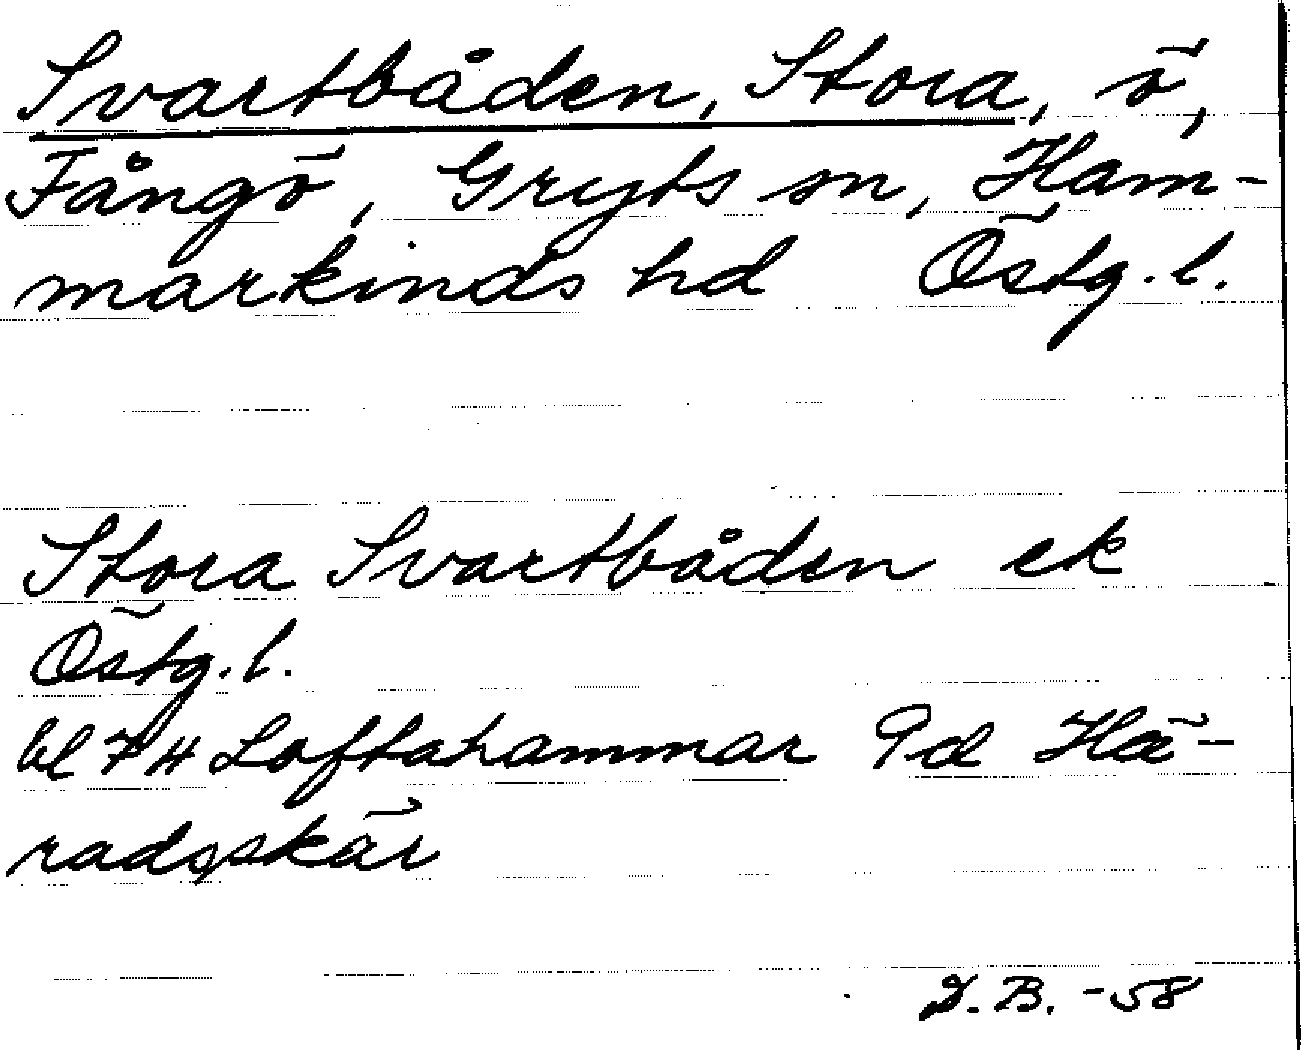 Svartbåden, Stora, ö,
Fångö, Gryts sn, Ham-
markinds hd Östg. l.
Stora Svartbåden ek
Östg. l.
bl 7 H Loftahammar 9d Hä-
radsskär
D. B. -58